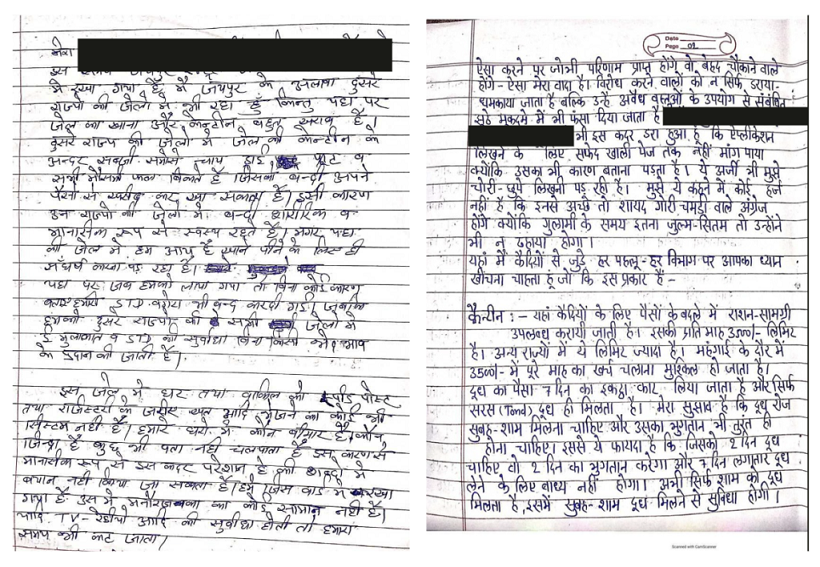 मेरा
मे रखा गया है मैं जयपुर के अलावा दुसरे
राज्यो की जेलो मे भी रहा हूं किन्तु यहा पर
जेल का खाना और केन्टीन बहुत खराब है।
दुसरे राज्य की जेलो मे जेल की केन्टीन के
अन्दर सब्जी समोसे चाय
सभी मौसमी फल मिलते है जिसको बन्दी अपने
पैसो से खरीद कर खा सकता है। इसी कारण
उन राज्यो की जेलो मे बन्दी शारीरिक व
मानसीक रूप से स्वस्थ रहते है। मगर यहा
की जेल मे हम आए है खाने पीने के लिए ही
संघर्ष करना पड़ रहा है।
यहा पर जब हमको लाया गया तो बिना कोई कारण
बताए हमारी STD वगेरा भी बन्द करदी गई। जबकि
हमको दुसरे राज्यो की सभी जेलो मे
ई मुलाकात व STD की सुविधा बिना किसी
के प्रदान की जाती है।
इस जेल मे घर तथा वकिल को स्पीड पोस्ट
तथा रजिस्टरी के जरीए पत्र आदि भेजने का कोई भी
सिस्टम नही है। हमारे घरो मे कौन बीमार है, कौन
जिन्दा है कुछ भी पता नही चल पाता है इस कारण से
मानसीक रूप से इस कदर परेशान है की शब्दो मे
बयान नही किया जा सकता है। हमे जिस वार्ड मे रखा
गया है उसमे मनोरंजन का कोई सामान नही है।
यदि TV-रेडीयो आदि की सुवीधा होती तो हमारा
समय भी कट जाता।
Date
Page 01
ऐसा करने पर जो भी परिणाम प्राप्त होंगे वो बेहद चौंकाने वाले
होंगे - ऐसा मेरा वादा है। विरोध करने वालों को न सिर्फ डराया-
धमकाया जाता है बल्कि उन्हें अवैध वस्तुओं के उपयोग से संबंधित
झूठे मुकदमे में भी फंसा दिया जाता है
भी इस कदर डरा हुआ हूं कि ऐप्लीकेशन
लिखने के लिए सफेद खाली पेज तक नहीं मांग पाया
क्योंकि उसका भी कारण बताना पड़ता है। ये अर्जी भी मुझे
चोरी-छुपे लिखनी पड़ रही है। मुझे ये कहने में कोई हर्ज
नहीं है कि इनसे अच्छे तो शायद गोरी चमड़ी वाले अंग्रेज
होंगे क्योंकि गुलामी के समय इतना जुल्म-सितम तो उन्होंने
भी न ढहाया होगा।
यहां में कैदियों से जुड़े हर पहलू-हर विभाग पर आपका ध्यान
खींचना चाहता हूं जो कि इस प्रकार है -
कैन्टीन :- यहां कैदियों के लिए पैसों के बदले में राशन-सामग्री
उपलब्ध करायी जाती है। इसकी प्रति माह 3500/- लिमिट
है। अन्य राज्यों में ये लिमिट ज्यादा है। महंगाई के दौर में
3500/- में पूरे माह का खर्च चलाना मुश्किल हो जाता है।
दूध का पैसा 7 दिन का इकट्ठा काट लिया जाता है और सिर्फ
सरस (Tond) दूध ही मिलता है। मेरा सुझाव है कि दूध रोज
सुबह-शाम मिलना चाहिए और उसका भुगतान भी तुरंत ही
होना चाहिए, इससे ये फायदा है कि जिसको 2 दिन दूध
चाहिए वो 2 दिन का भुगतान करेगा और 7 दिन लगातार दूध
लेने के लिए बाध्य नहीं होगा। अभी सिर्फ शाम को दूध
मिलता है, इसमें सुबह-शाम दूध मिलने से सुविधा होगी।
Scanned with CamScanner